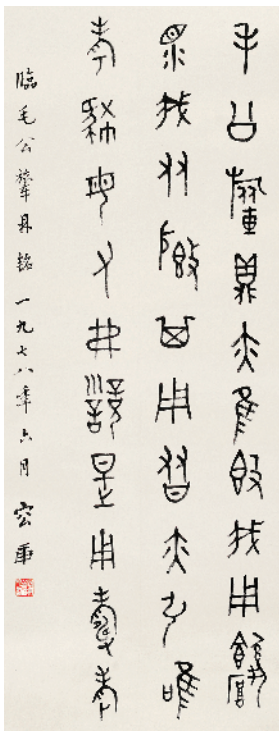 毛公旅鼎亦隹𣪘我用
眔我友匓其用友亦引唯
孝肆毋又弗競是用壽考
臨毛公旅鼎銘一九七八年六月容庚